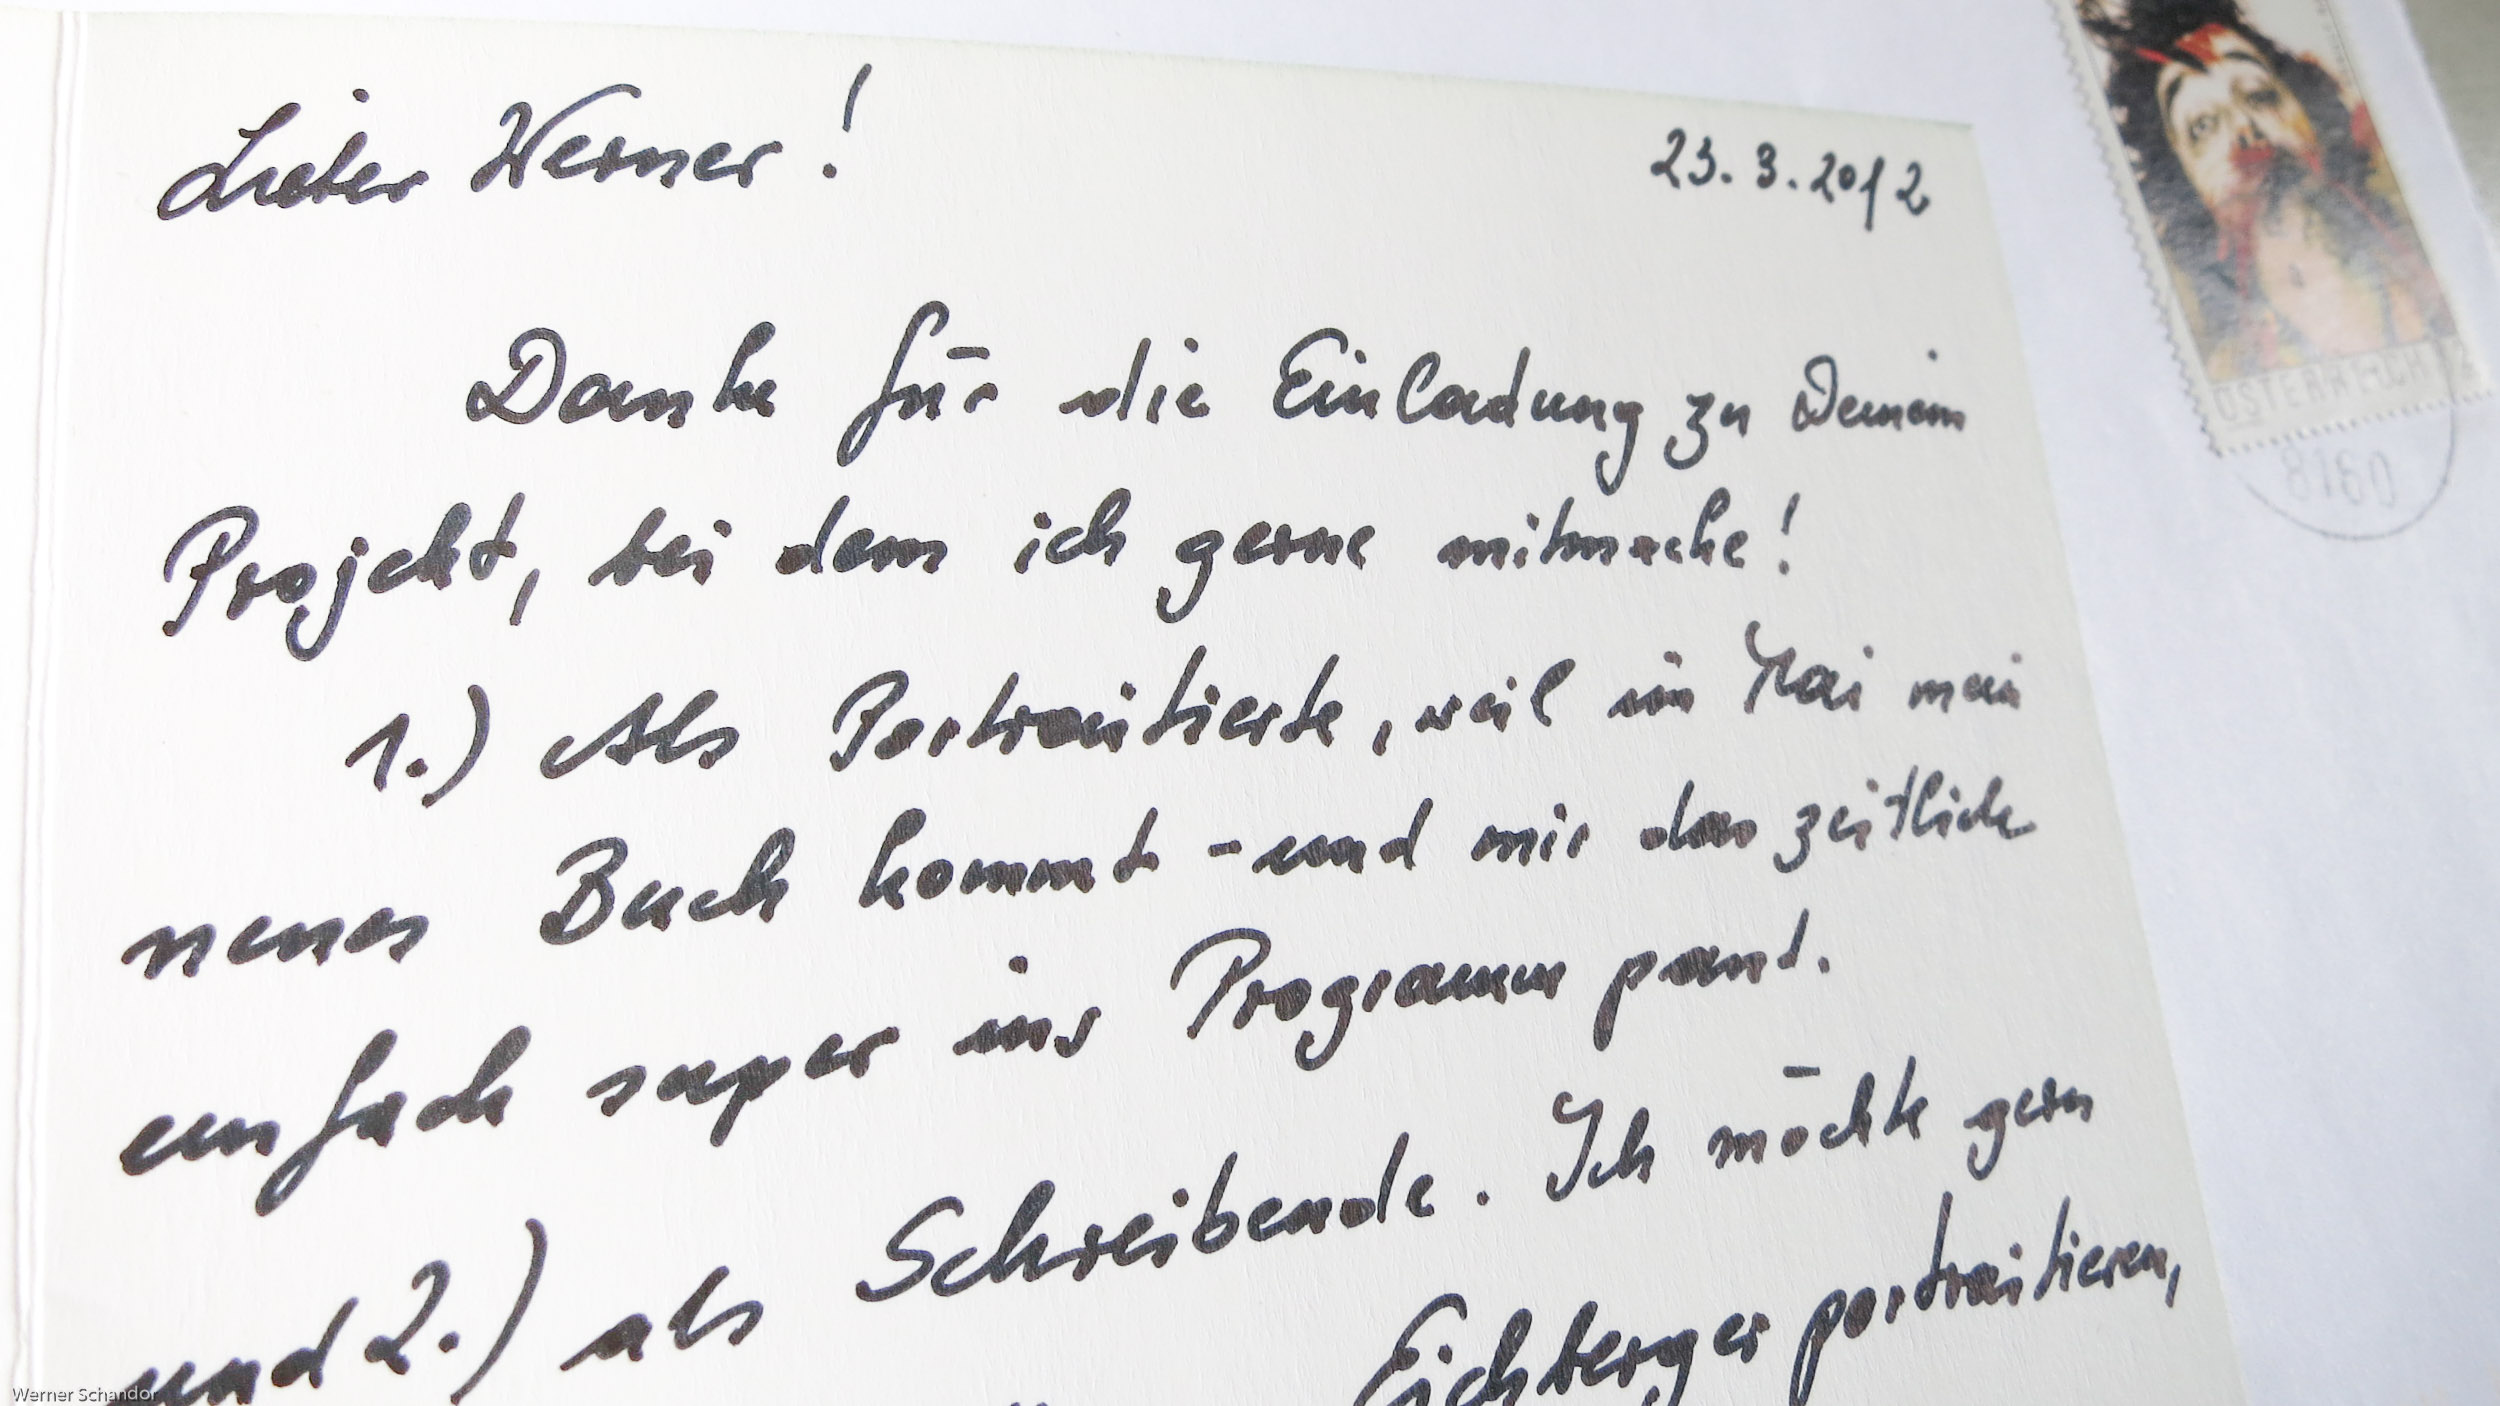 Lieber Werner!
23.3.2012
Danke für die Einladung zu Deinem
Projekt, bei dem ich gerne mitmache!
1.) Als Portraitierte, weil im Mai mein
neues Buch kommt - und mir das zeitlich
einfach super ins Programm passt.
und 2.) als Schreibende. Ich möchte gern
Eichberger portraitieren,
ÖSTERREICH
8160
Werner Schandor